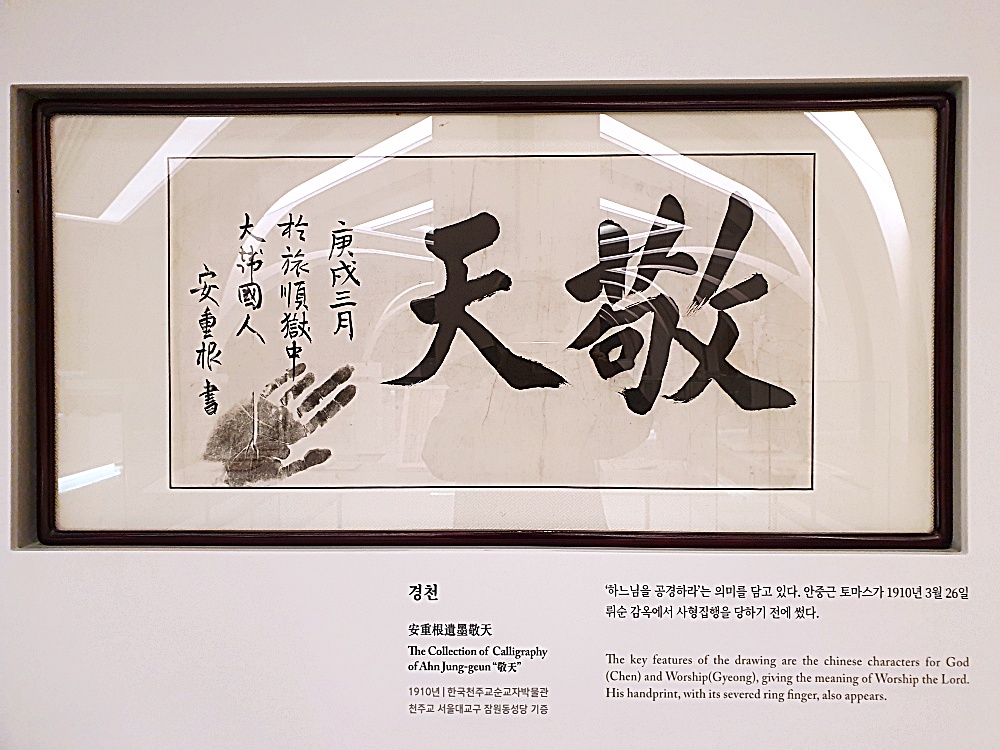 敬天
庚戌三月
於旅順獄中
大韓國人
安重根書
경천
安重根遺墨敬天
The Collection of Calligraphy
of Ahn Jung-geun “敬天”
1910년 | 한국천주교순교자박물관
천주교 서울대교구 잠원동성당 기증
‘하느님을 공경하라’는 의미를 담고 있다. 안중근 토마스가 1910년 3월 26일
뤼순 감옥에서 사형집행을 당하기 전에 썼다.
The key features of the drawing are the chinese characters for God
(Chen) and Worship(Gyeong), giving the meaning of Worship the Lord.
His handprint, with its severed ring finger, also appears.